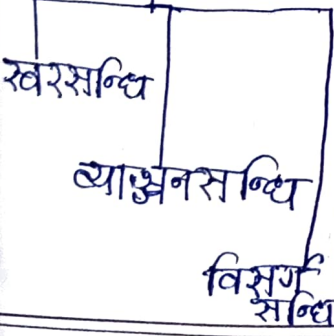 स्वरसन्धि
व्याञ्जनसन्धि
विसर्ग
सन्धि